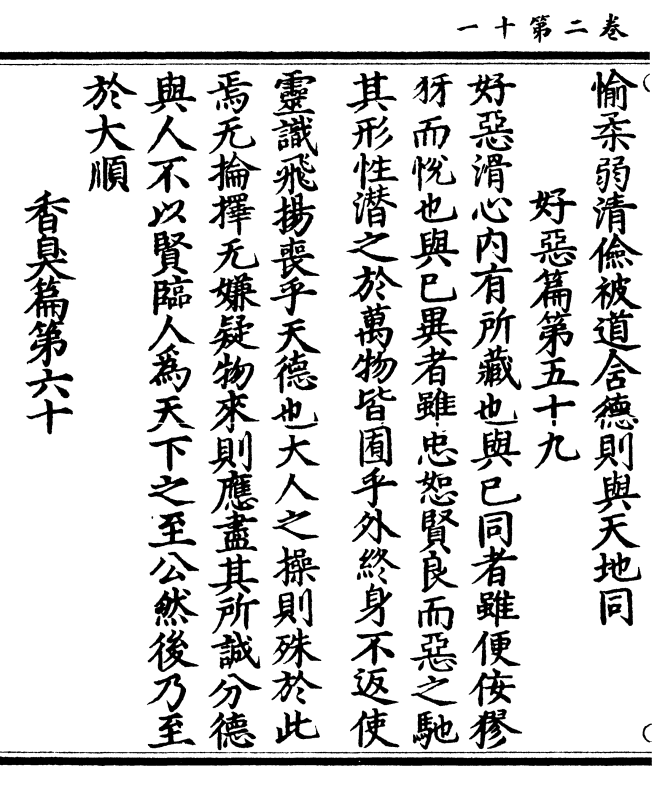 卷二第十一
愉柔弱清儉被道含德則與天地同
好惡篇第五十九
好惡滑心内有所藏也與已同者雖便侫獿
犽而悅也與已異者雖忠恕賢良而惡之馳
其形性潛之於萬物皆囿乎外終身不返使
靈識飛揚喪乎天德也大人之操則殊於此
焉无掄擇无嫌疑物來則應盡其所誠分德
與人不以賢臨人爲天下之至公然後乃至
於大順
香臭篇第六十